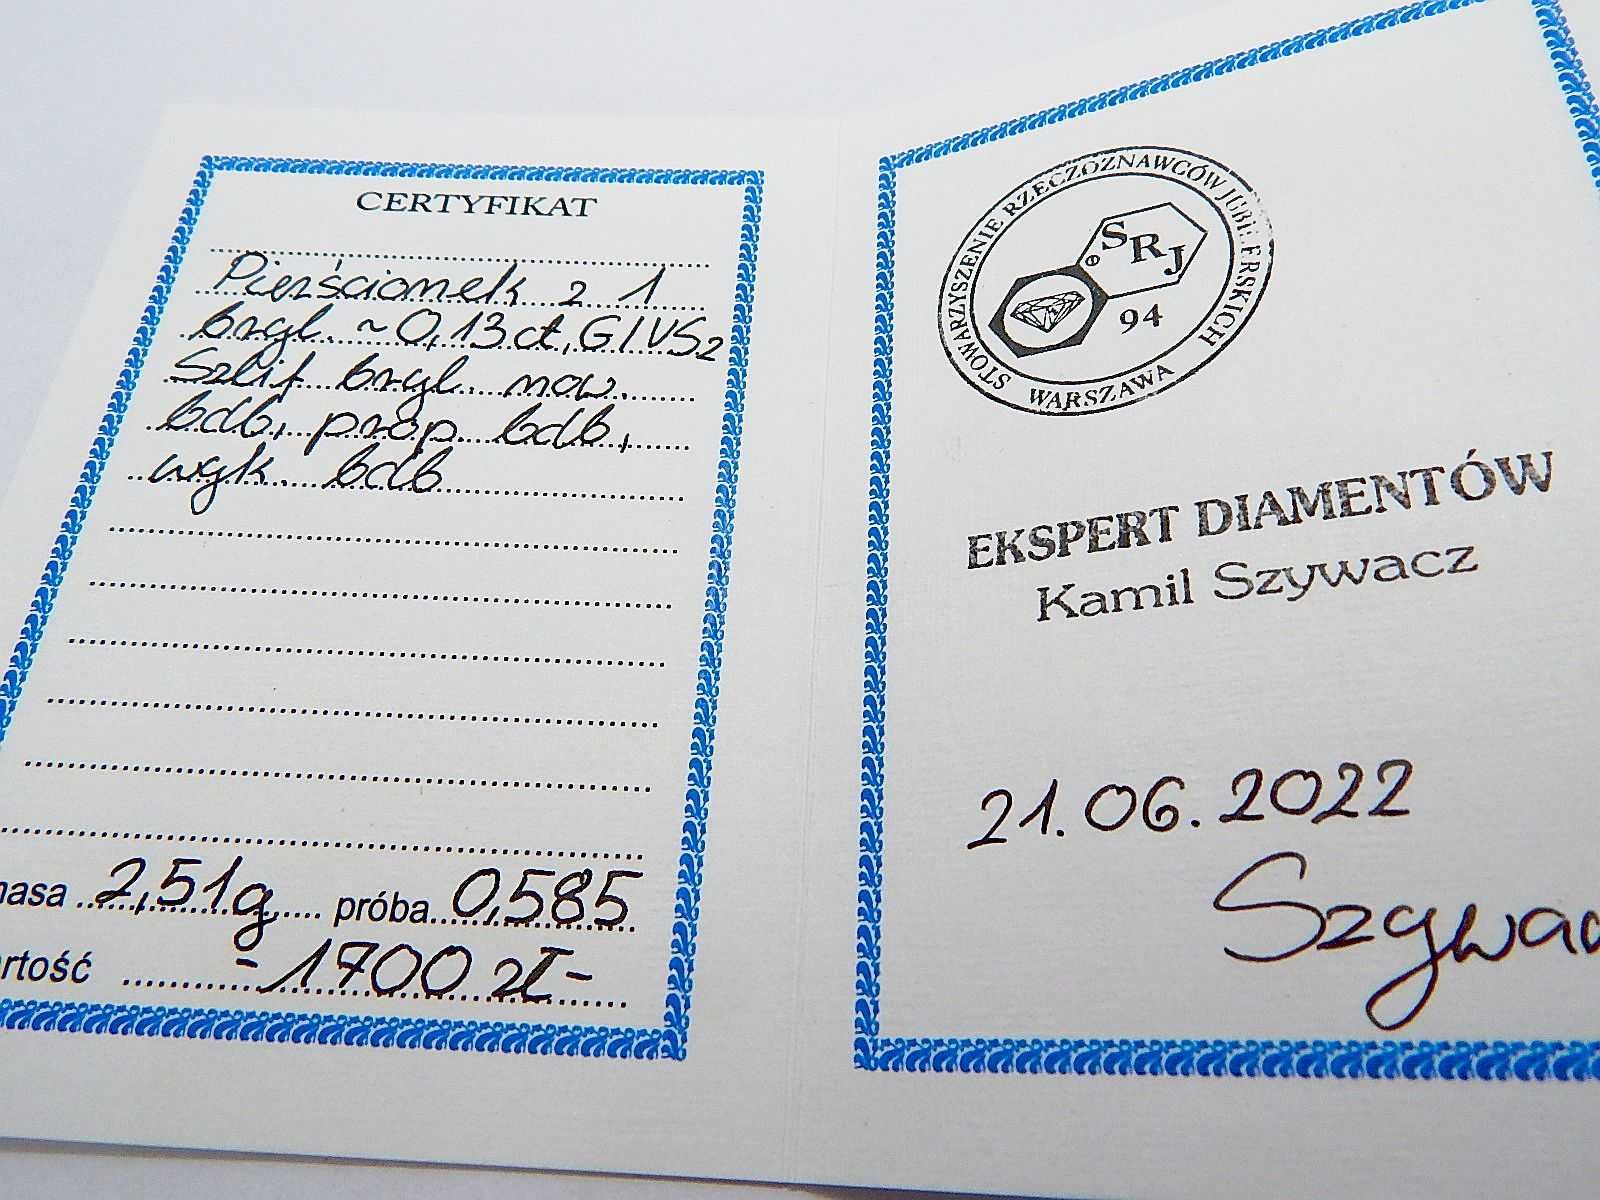 CERTYFIKAT
Pierścionek z 1
bryl. ~ 0,13 ct, G/VS2
Szlif bryl. now.
bdb, prop. bdb,
wyk. bdb
masa 2,51g próba 0,585
wartość -1700 zł-
STOWARZYSZENIE RZECZOZNAWCÓW JUBILERSKICH
WARSZAWA
SRJ
94
EKSPERT DIAMENTÓW
Kamil Szywacz
21.06.2022
Szywac